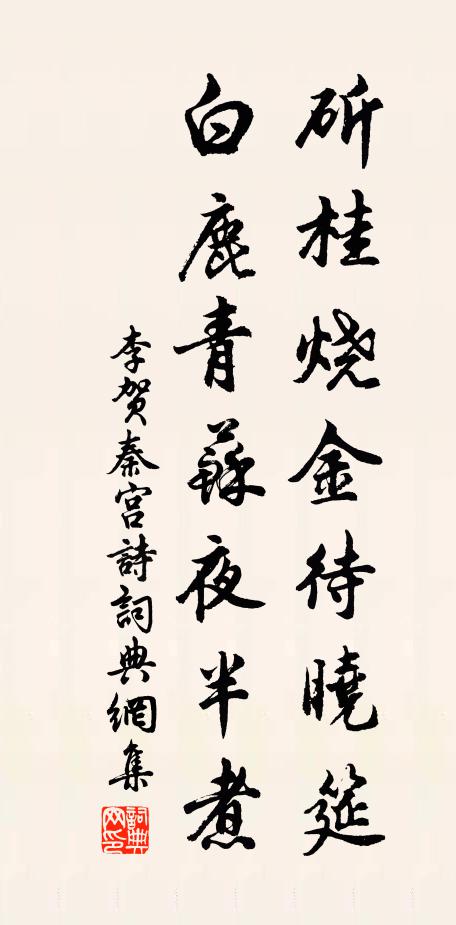 斫桂烧金待曉筵
白鹿青蘇夜半煮
李贺秦宫詩詞典網集
詞典网印